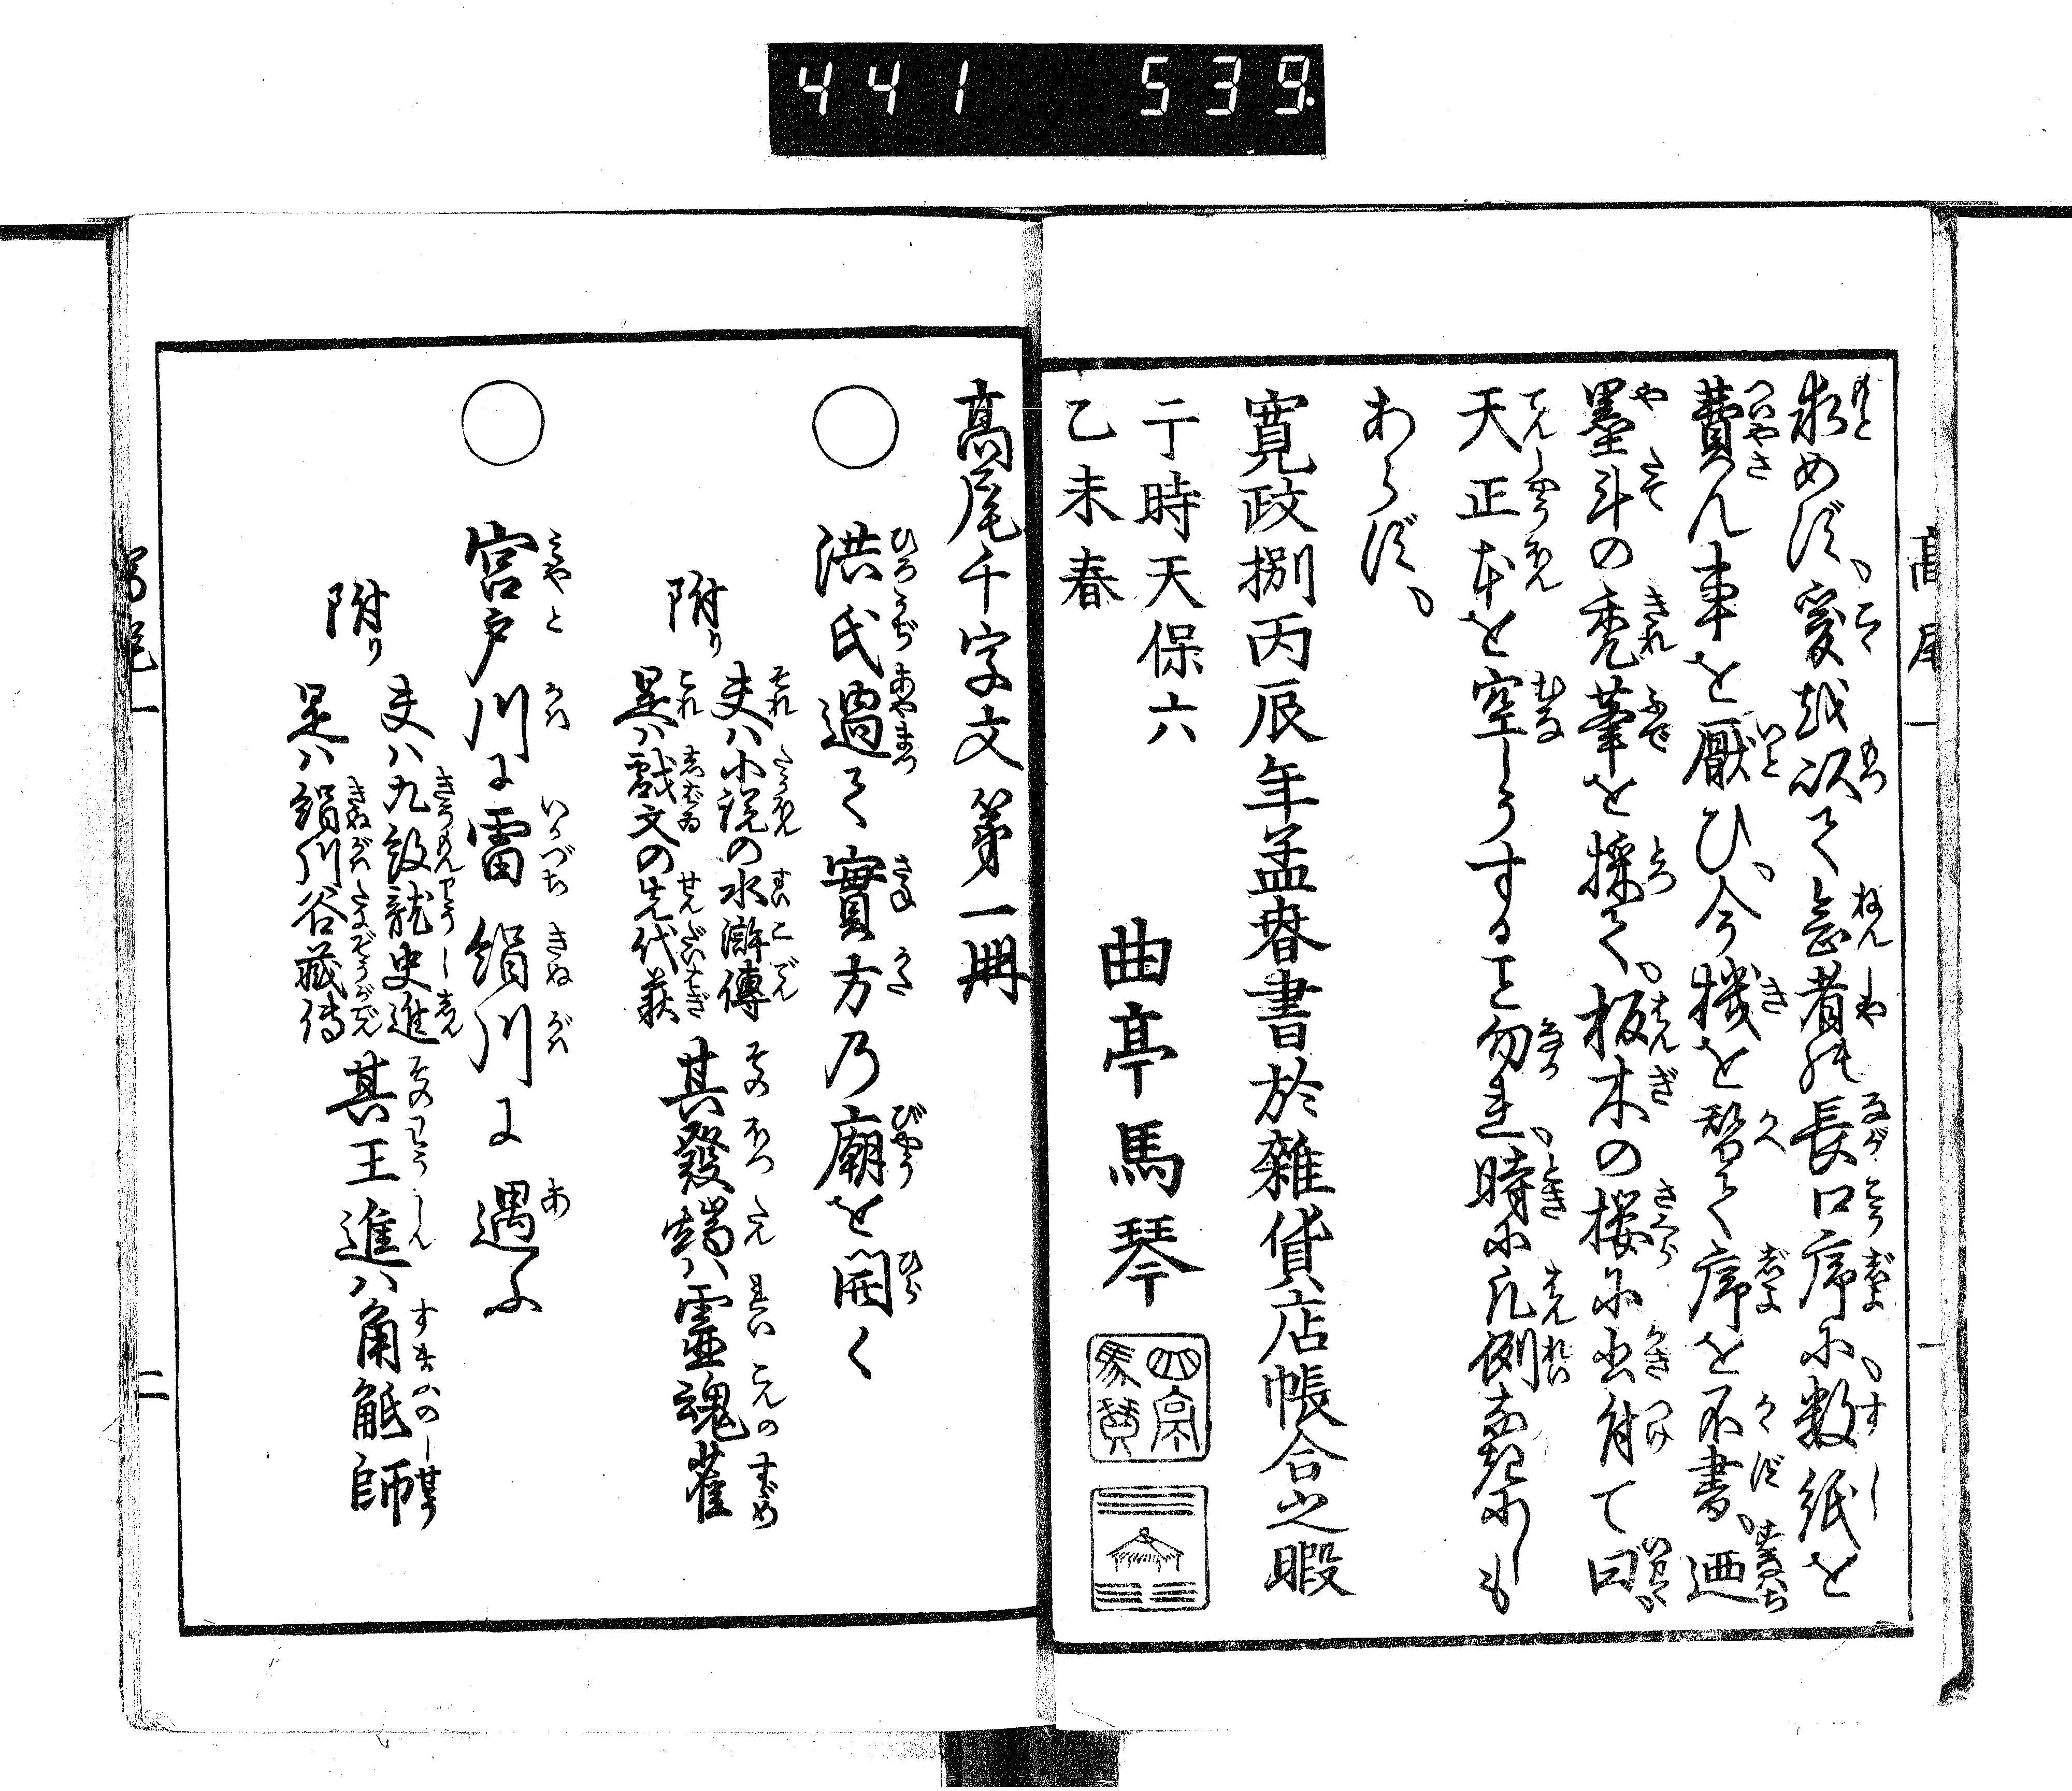 441 539
高尾一
求めず、爰を以て看者の長口序に、数紙を
費さん事を厭ひ、今機を轉て序を不書、迺
墨斗の禿筆を採て、板木の桜に書付て曰、
天正本を空しうすること勿れ、時に凡例なきにしも
あらず、
寛政捌丙辰年孟春書於雑貨店帳合之暇
于時天保六
乙未春
曲亭馬琴
高尾千字文第一冊
○洪氏過て實方乃廟を開く
附り
夫ハ小説の水滸傳
是ハ戯文の先代萩
其發端ハ霊魂雀
○宮戸川に雷 絹川に遇ふ
附り
夫ハ九紋龍史進
是ハ絹川谷藏傳
其王進ハ角觝師
高尾一
二